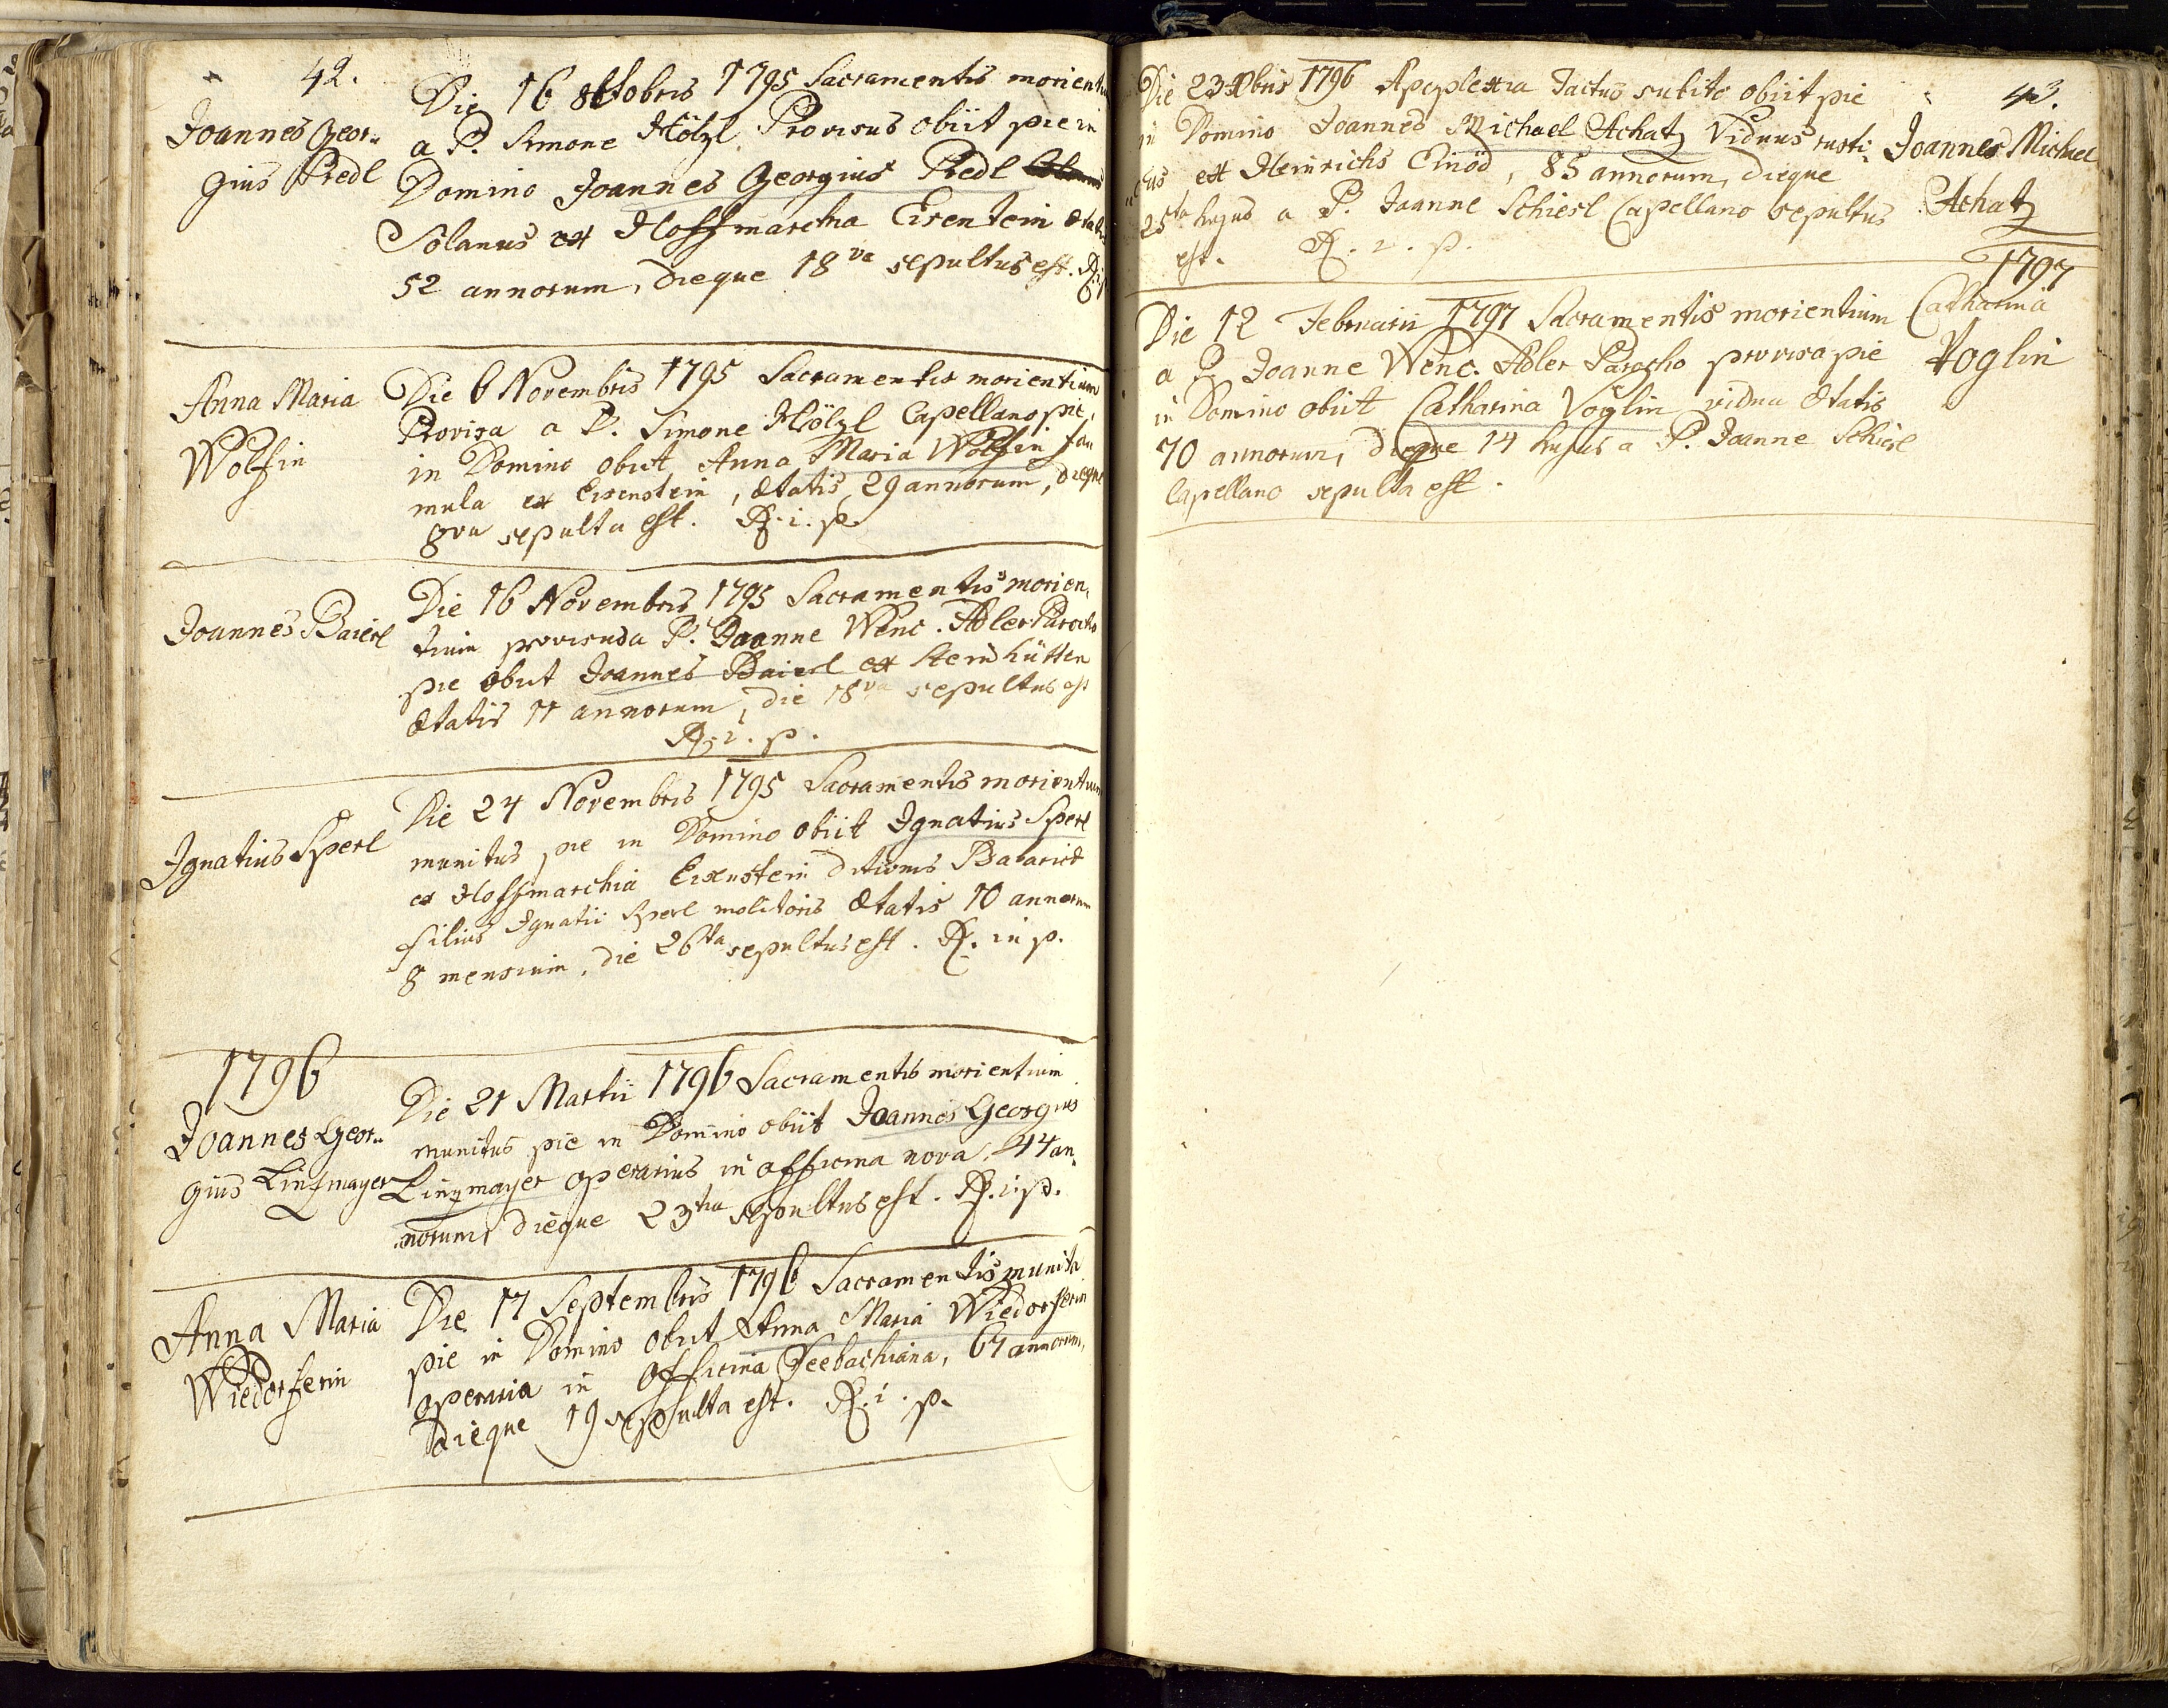 42.
Joannes Geor„
gius Predl
Die 16 8ctobris 1795 Sacramentis morientiu
a P. Simone Hölzl Provisus obiit pie in
Domino Joannes Georgius Predl
Solanus ex Hoffmarcha Eisenstein ætatis
52 annorum, dieque 18va sepultus est. R. i. p
Anna Maria
Wolfin
Die 6 Novembris 1795 Sacramentis morientium
Provisa a P. Simone Hölzl Capellano pie,
in Domino obiit Anna Maria Wolfin fa
mula ex Eisenstein, ætatis 29 annorum, dieque
8va sepulta est. R. i. p
Joannes Baierl
Die 16 Novembris 1795 Sacramentis morien„
tium provisus a P. Joanne Wenc. Adler Parocho
pie obiit Joannes Baierl ex Steinhütten
ætatis 11 annorum, die 18va sepultus est
R. i. p.
Ignatius Sperl
Die 24 Novembris 1795 Sacramentis morientium
munitus pie in Domino obiit Ignatius Sperl
ex Hoffmarchia Eisenstein ditionis Bavaricæ
filius Ignatii Sperl molitoris ætatis 10 annorum
8 mensium, die 26ta sepultus est. R. in p.
1796
Joannes Geor„
gius Linzmayer
Die 21 Martii 1796 Sacramentis morientium
munitus pie in Domino obiit Joannes Georgius
Linzmayer operarius in officina nova, 44 an„
norum, dieque 23tia sepultus est. R. i. p.
Anna Maria
Wiedorferin
Die 17 Septembris 1796 Sacramentis munita
pie in Domino obiit Anna Maria Wiedorferin
operaria in Officina Seebachiana, 67 annorum,
dieque 19 sepulta est. R. i. p.
43.
Die 23 Xbris 1796 Apoplexia tactus subito obiit pie
in Domino Joannes Michael Achatz Viduus rusti„
„cus ex Heinrichs Einöd, 85 annorum, dieque
25ta hujus a P. Joanne Schiesl Capellano sepultus
est. R. i. p.
Joannes Michael
Achatz
1797
Die 12 Februarii 1797 Sacramentis morientium
a P. Joanne Wenc. Adler Parocho provisa pie
in Domino obiit Catharina Voglin vidua ætatis
70 annorum, dieque 14 hujus a P. Joanne Schiesl
Capellano sepulta est.
Catharina
Voglin